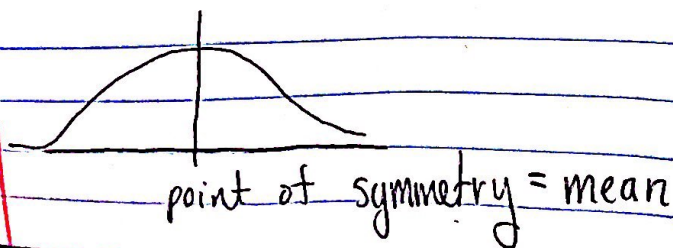 point of symmetry = mean